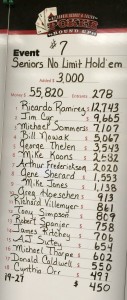 ROUND UP!
Event #7
Seniors No Limit Hold'em
Added $ 3,000
Money $ 55,820 Entrants 278
1 Ricardo Ramirez $ 12,743
2 Jim Car $ 9,665
3 Michael Sommers $ 7,107
4 Bill Novak $ 5,067
5 George Thelen $ 3,543
6 Mike Koons $
7 Arthur Frederiksen $ 2,020
8 Gene Sherard $ 1,553
9 Mike Jones $ 1,138
10 Greg Noeschen $ 913
11 Richard Villemyer $ 861
12 Tony Simpson $ 809
13 Robert Spanjer $ 758
14 James Ritchey $ 706
15 AJ Sixtey $ 654
16 Michael Thorpe $ 602
17 Donald Caldwell $ 550
18 Cynthia Orr $ 497
19-27 $ 450